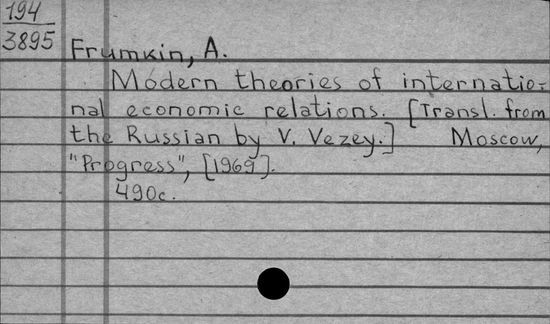 194
3895
Frumkin, A.
Modern theories of internatio-
nal economic relations. [Transl. from
the Russian by V. Vezey.] Moscow,
"Progress", [1969].
490c.